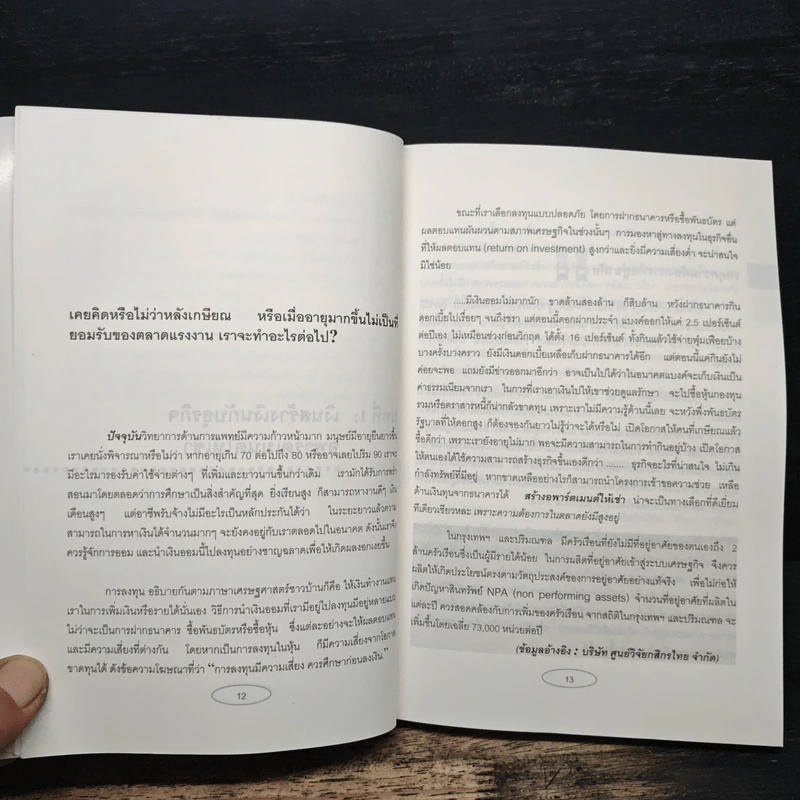 เคยคิดหรือไม่ว่าหลังเกษียณ หรือเมื่ออายุมากขึ้นไม่เป็นที่
ยอมรับของตลาดแรงงาน เราจะทำอะไรต่อไป?
ปัจจุบันวิทยาการด้านการแพทย์มีความก้าวหน้ามาก มนุษย์มีอายุยืนยาวขึ้น
เราเคยนั่งพิจารณาหรือไม่ว่า หากอายุเกิน 70 ต่อไปถึง 80 หรืออาจเลยไปริม 90 เราจะ
มีอะไรมารองรับค่าใช้จ่ายต่างๆ ที่เพิ่มและยาวนานขึ้นกว่าเดิม เรามักได้รับการพร่ำ
สอนมาโดยตลอดว่าการศึกษาเป็นสิ่งสำคัญที่สุด ยิ่งเรียนสูง ก็สามารถหางานดีๆ
เดือนสูงๆ แต่อาชีพรับจ้างไม่มีอะไรเป็นหลักประกันได้ว่า ในระยะยาวแล้วความ
สามารถในการหาเงินได้จำนวนมากๆ จะยังคงอยู่กับเราตลอดไปในอนาคต ดังนั้นเราจึง
ควรรู้จักการออม และนำเงินออมนี้ไปลงทุนอย่างชาญฉลาดเพื่อให้เกิดผลงอกเงยขึ้น
การลงทุน อธิบายกันตามภาษาเศรษฐศาสตร์ชาวบ้านก็คือ ให้เงินทำงานแทน
เราในการเพิ่มเงินหรือรายได้นั่นเอง วิธีการนำเงินออมที่เรามีอยู่ไปลงทุนมีอยู่หลายแบบ
ไม่ว่าจะเป็นการฝากธนาคาร ซื้อพันธบัตรหรือซื้อหุ้น ซึ่งแต่ละอย่างจะให้ผลตอบแทน
และมีความเสี่ยงที่ต่างกัน โดยหากเป็นการลงทุนในหุ้น ก็มีความเสี่ยงจากโอกาส
ขาดทุนได้ ดังข้อความโฆษณาที่ว่า "การลงทุนมีความเสี่ยง ควรศึกษาก่อนลงเงิน"
12
ขณะที่เราเลือกลงทุนแบบปลอดภัย โดยการฝากธนาคารหรือซื้อพันธบัตร แต่
ผลตอบแทนผันผวนตามสภาพเศรษฐกิจในช่วงนั้นๆ การมองหาลู่ทางลงทุนในธุรกิจอื่น
ที่ให้ผลตอบแทน (return on investment) สูงกว่าและยิ่งมีความเสี่ยงต่ำ จะน่าสนใจ
มิใช่น้อย
.....มีเงินออมไม่มากนัก ขาดล้านสองล้าน ก็สิบล้าน หวังฝากธนาคารกิน
ดอกเบี้ยไปเรื่อยๆ จนถึงชรา แต่ตอนนี้ดอกฝากประจำ แบงค์ออกให้แค่ 2.5 เปอร์เซ็นต์
ต่อปีเอง ไม่เหมือนช่วงก่อนวิกฤต ได้ตั้ง 16 เปอร์เซ็นต์ ทั้งกินแล้วใช้จ่ายฟุ่มเฟือยบ้าง
บางครั้งบางคราว ยังมีเงินดอกเบี้ยเหลือเก็บฝากธนาคารได้อีก แต่ตอนนี้แค่กินยังไม่
ค่อยจะพอ แถมยังมีข่าวออกมาอีกว่า อาจเป็นไปได้ว่าในอนาคตแบงค์จะเก็บเงินเป็น
ค่าธรรมเนียมจากเรา ในการที่เราเอาเงินไปให้เขาช่วยดูแลรักษา จะไปซื้อหุ้นกองทุน
รวมหรือตราสารหนี้ก็น่ากลัวขาดทุน เพราะเราไม่มีความรู้ด้านนี้เลย จะหวังพึ่งพันธบัตร
รัฐบาลที่ให้ดอกสูง ก็ต้องจองกันยาวไม่รู้ว่าจะได้หรือไม่ เปิดโอกาสให้คนที่เกษียณแล้ว
ซื้อดีกว่า เพราะเรายังอายุไม่มาก พอจะมีความสามารถในการทำกินอยู่บ้าง เปิดโอกาส
ให้ตนเองได้ใช้ความสามารถสร้างธุรกิจขึ้นเองดีกว่า ....... ธุรกิจอะไรที่น่าสนใจ ไม่เกิน
กำลังทรัพย์ที่มีอยู่ หากขาดเหลืออย่างไรก็สามารถนำโครงการเข้าขอความช่วย เหลือ
ด้านเงินทุนจากธนาคารได้ สร้างอพาร์ตเมนต์ให้เช่า น่าจะเป็นทางเลือกที่ดีเยี่ยม
ทีเดียวเชียวหละ เพราะความต้องการในตลาดยังมีสูงอยู่
ในกรุงเทพฯ และปริมณฑล มีครัวเรือนที่ยังไม่มีที่อยู่อาศัยของตนเองถึง 2
ล้านครัวเรือนซึ่งเป็นผู้มีรายได้น้อย ในการผลิตที่อยู่อาศัยเข้าสู่ระบบเศรษฐกิจ จึงควร
ผลิตให้เกิดประโยชน์ตรงตามวัตถุประสงค์ของการอยู่อาศัยอย่างแท้จริง เพื่อไม่ก่อให้
เกิดปัญหาสินทรัพย์ NPA (non performing assets) จำนวนที่อยู่อาศัยที่ผลิตใน
แต่ละปี ควรสอดคล้องกับการเพิ่มของครัวเรือน จากสถิติในกรุงเทพฯ และปริมณฑล จะ
เพิ่มขึ้นโดยเฉลี่ย 73,000 หน่วยต่อปี
(ข้อมูลอ้างอิง : บริษัท ศูนย์วิจัยกสิกรไทย จำกัด)
13